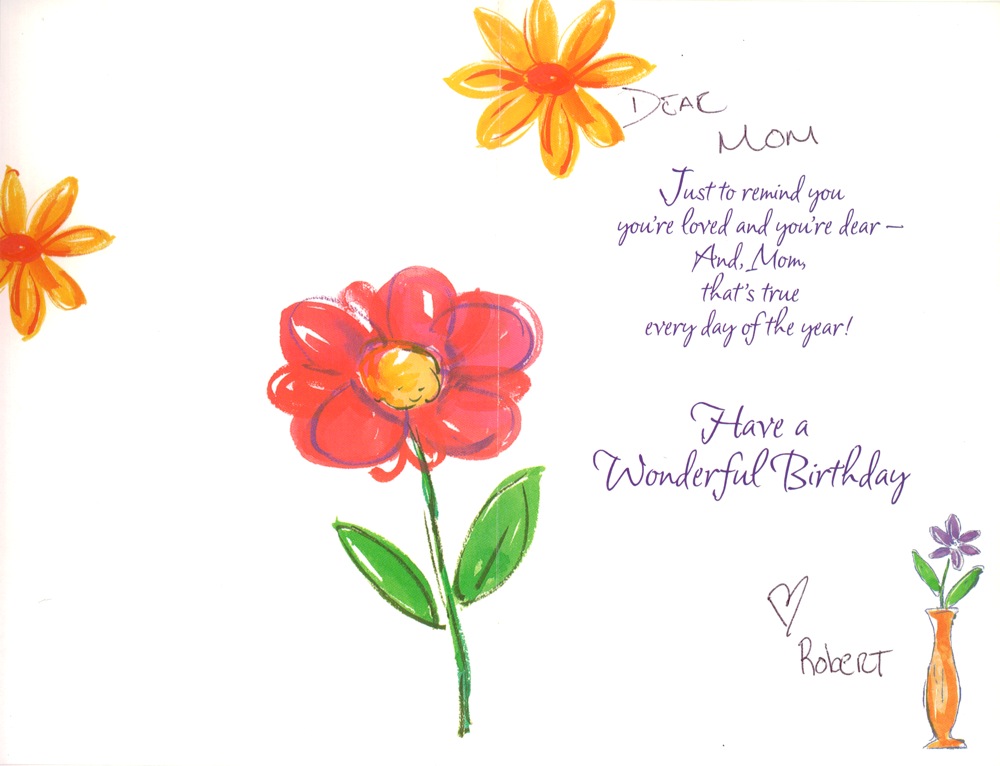 DEAR
MOM
Just to remind you
you're loved and you're dear —
And, Mom,
that's true
every day of the year!
Have a
Wonderful Birthday
♡
RobERT